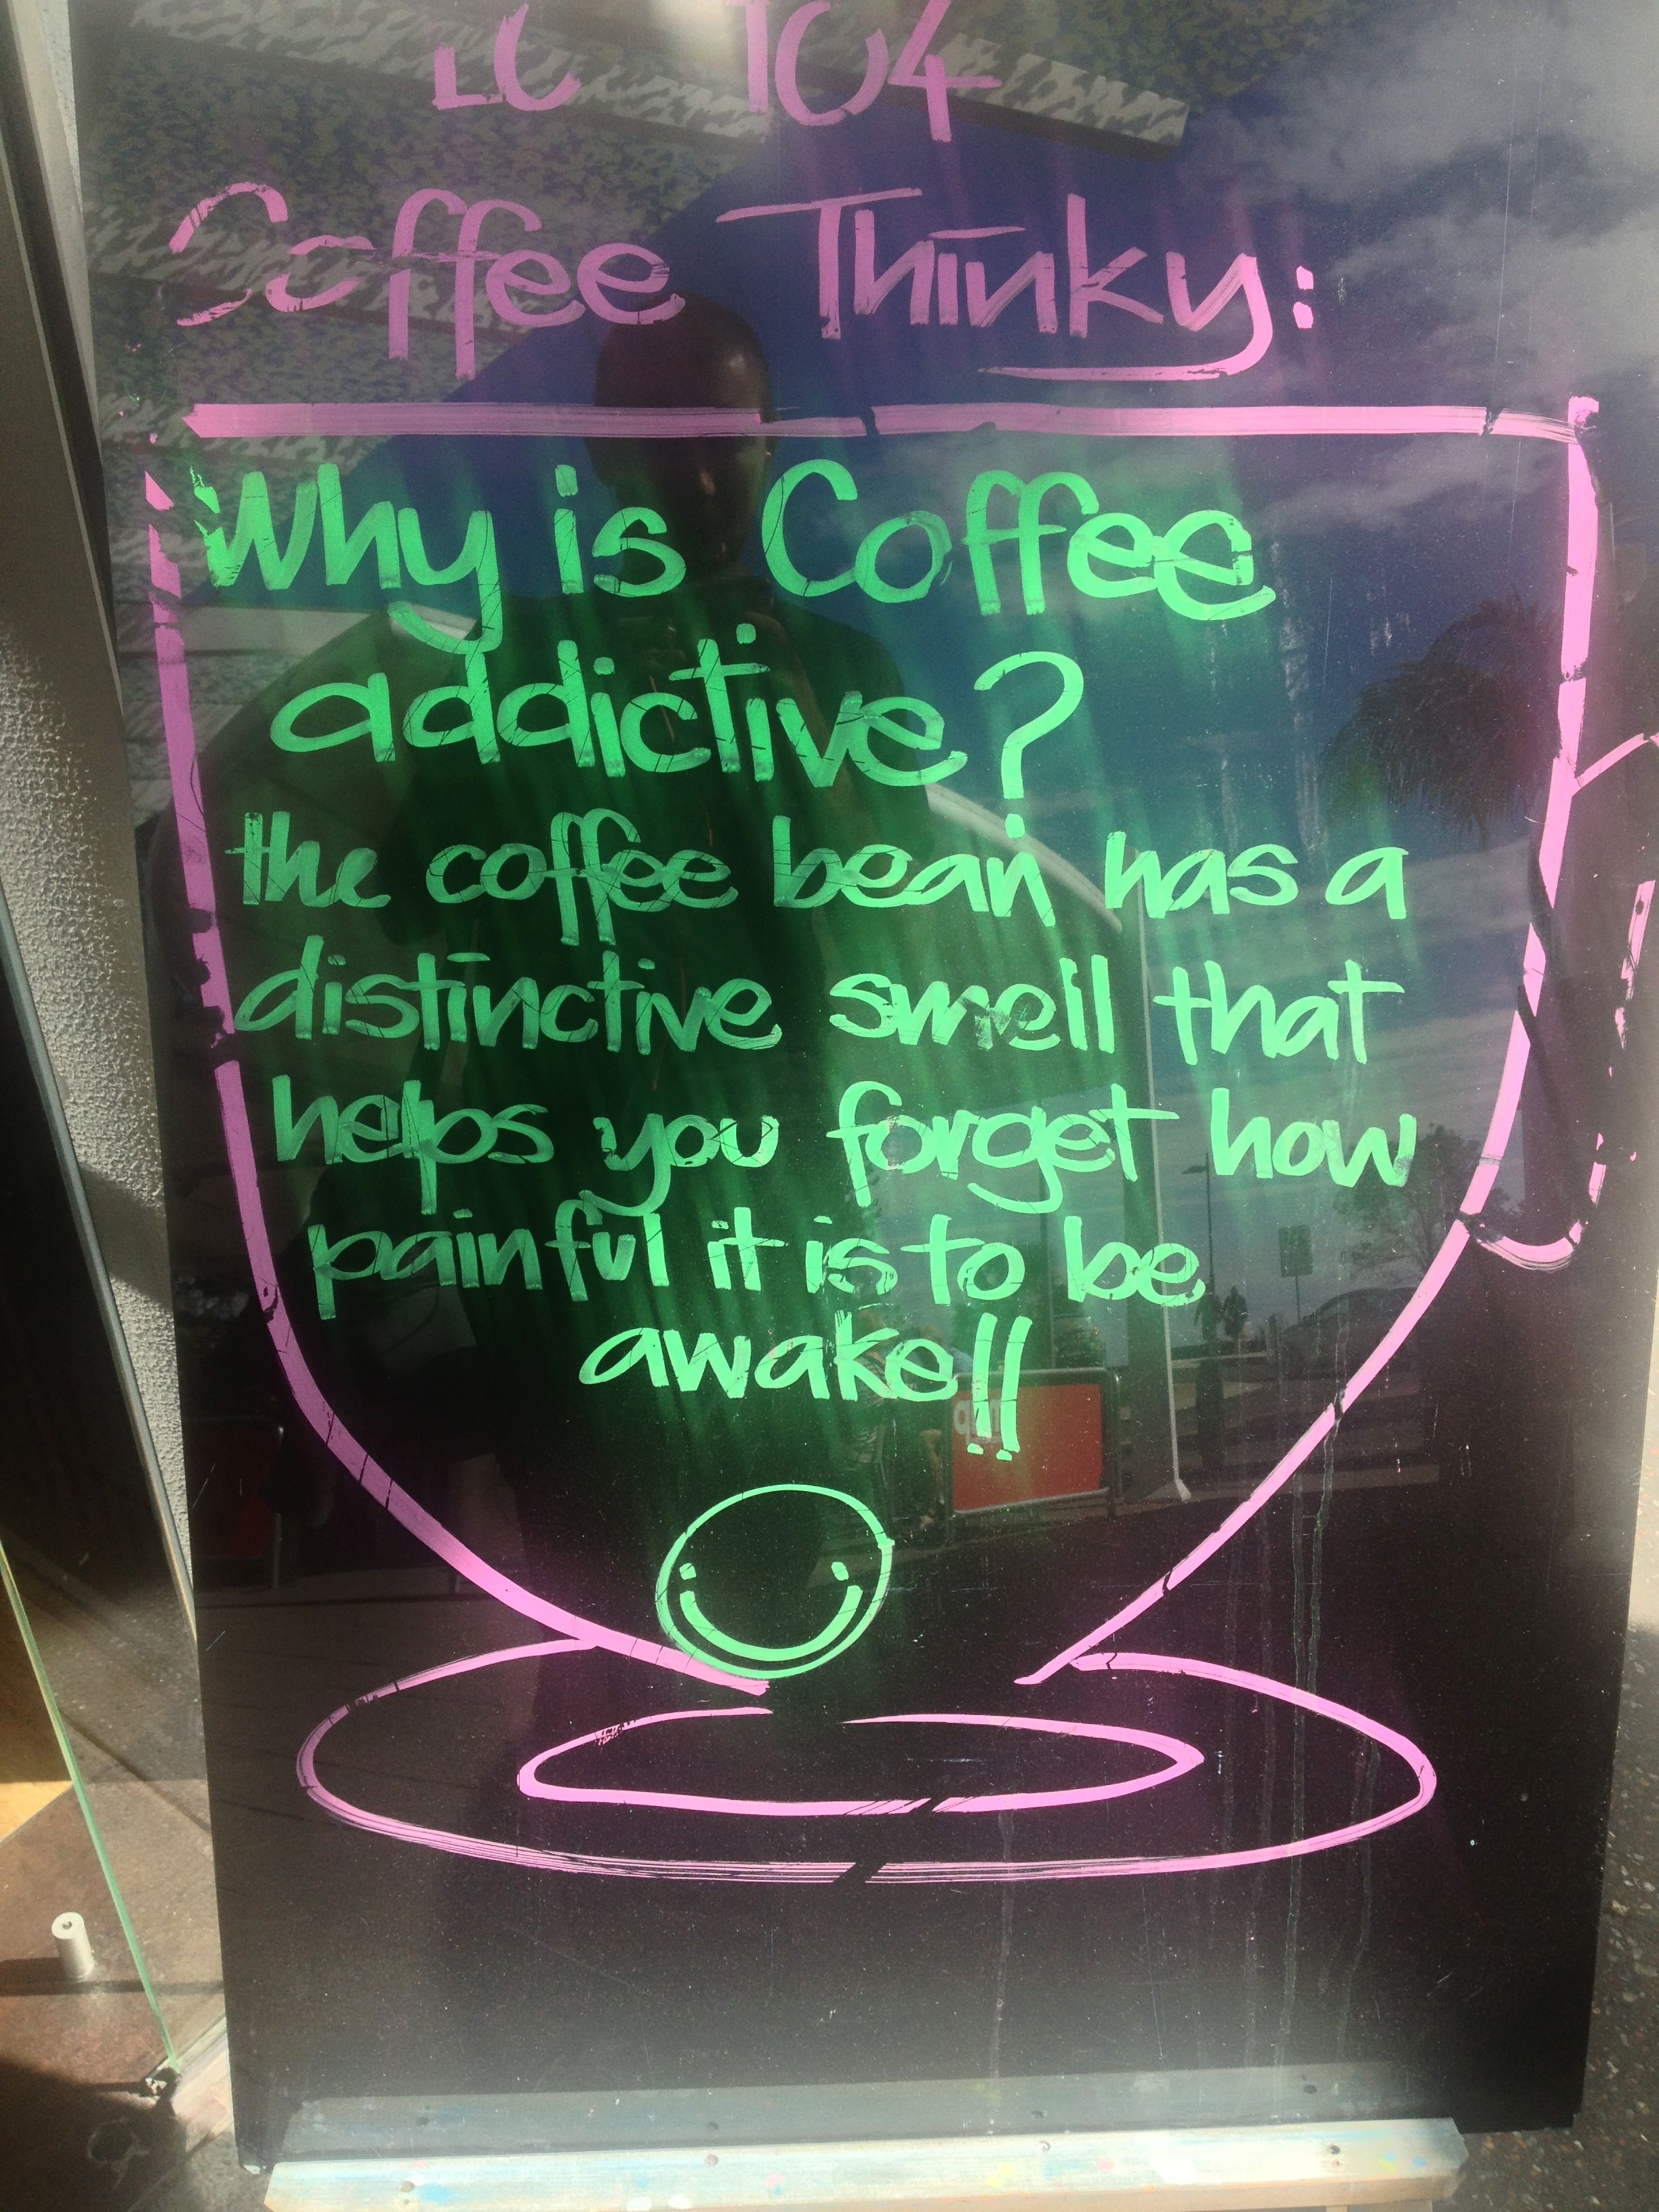 104
Coffee Thinky:
Why is Coffee
addictive?
the coffee bean has a
distinctive smell that
helps you forget how
painful it is to be
awake!!